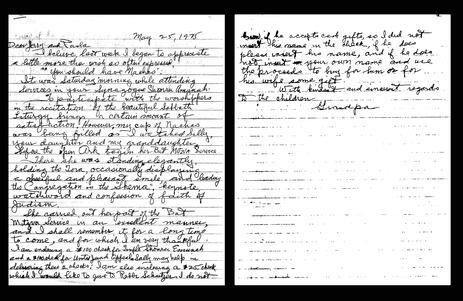 May 25, 1975
Dear Jerry and Paula
I believe last week I began to appreciate
a little more the wish so often expressed
"You should have Naches"
It was Saturday morning while attending
services in your Synagogue
To participate with the worshippers
in the recitation of the beautiful Sabbath
Liturgy brings a certain amount of
satisfaction. However, my cup of Naches
was being filled as I watched Sally,
your daughter and my granddaughter
before the open Ark begin her Bat Mitzva Service
There she was standing elegantly
holding the Tora, occasionally displaying
a cheerful and pleasant smile, and leading
the Congregation in the Shema, keynote,
watchword and confession of faith of
Judaism.
She carried out her part of the Bat
Mitzva Service in an excellent manner,
and I shall remember it for a long time
to come, and for which I am very thankful
I am enclosing a $10 check for
and a check for United Jewish Appeal. Sally may help in
delivering these 2 checks. I am also enclosing a $25 check
which I would like to give to Rabbi I do not
know if he accepts cash gifts, so I did not
insert his name in the check, if he does
please insert his name, and if he does
not insert your own name and use
the proceeds to buy for him or for
his wife some gift.
With love and sincerest regards
to the children
Grandpa